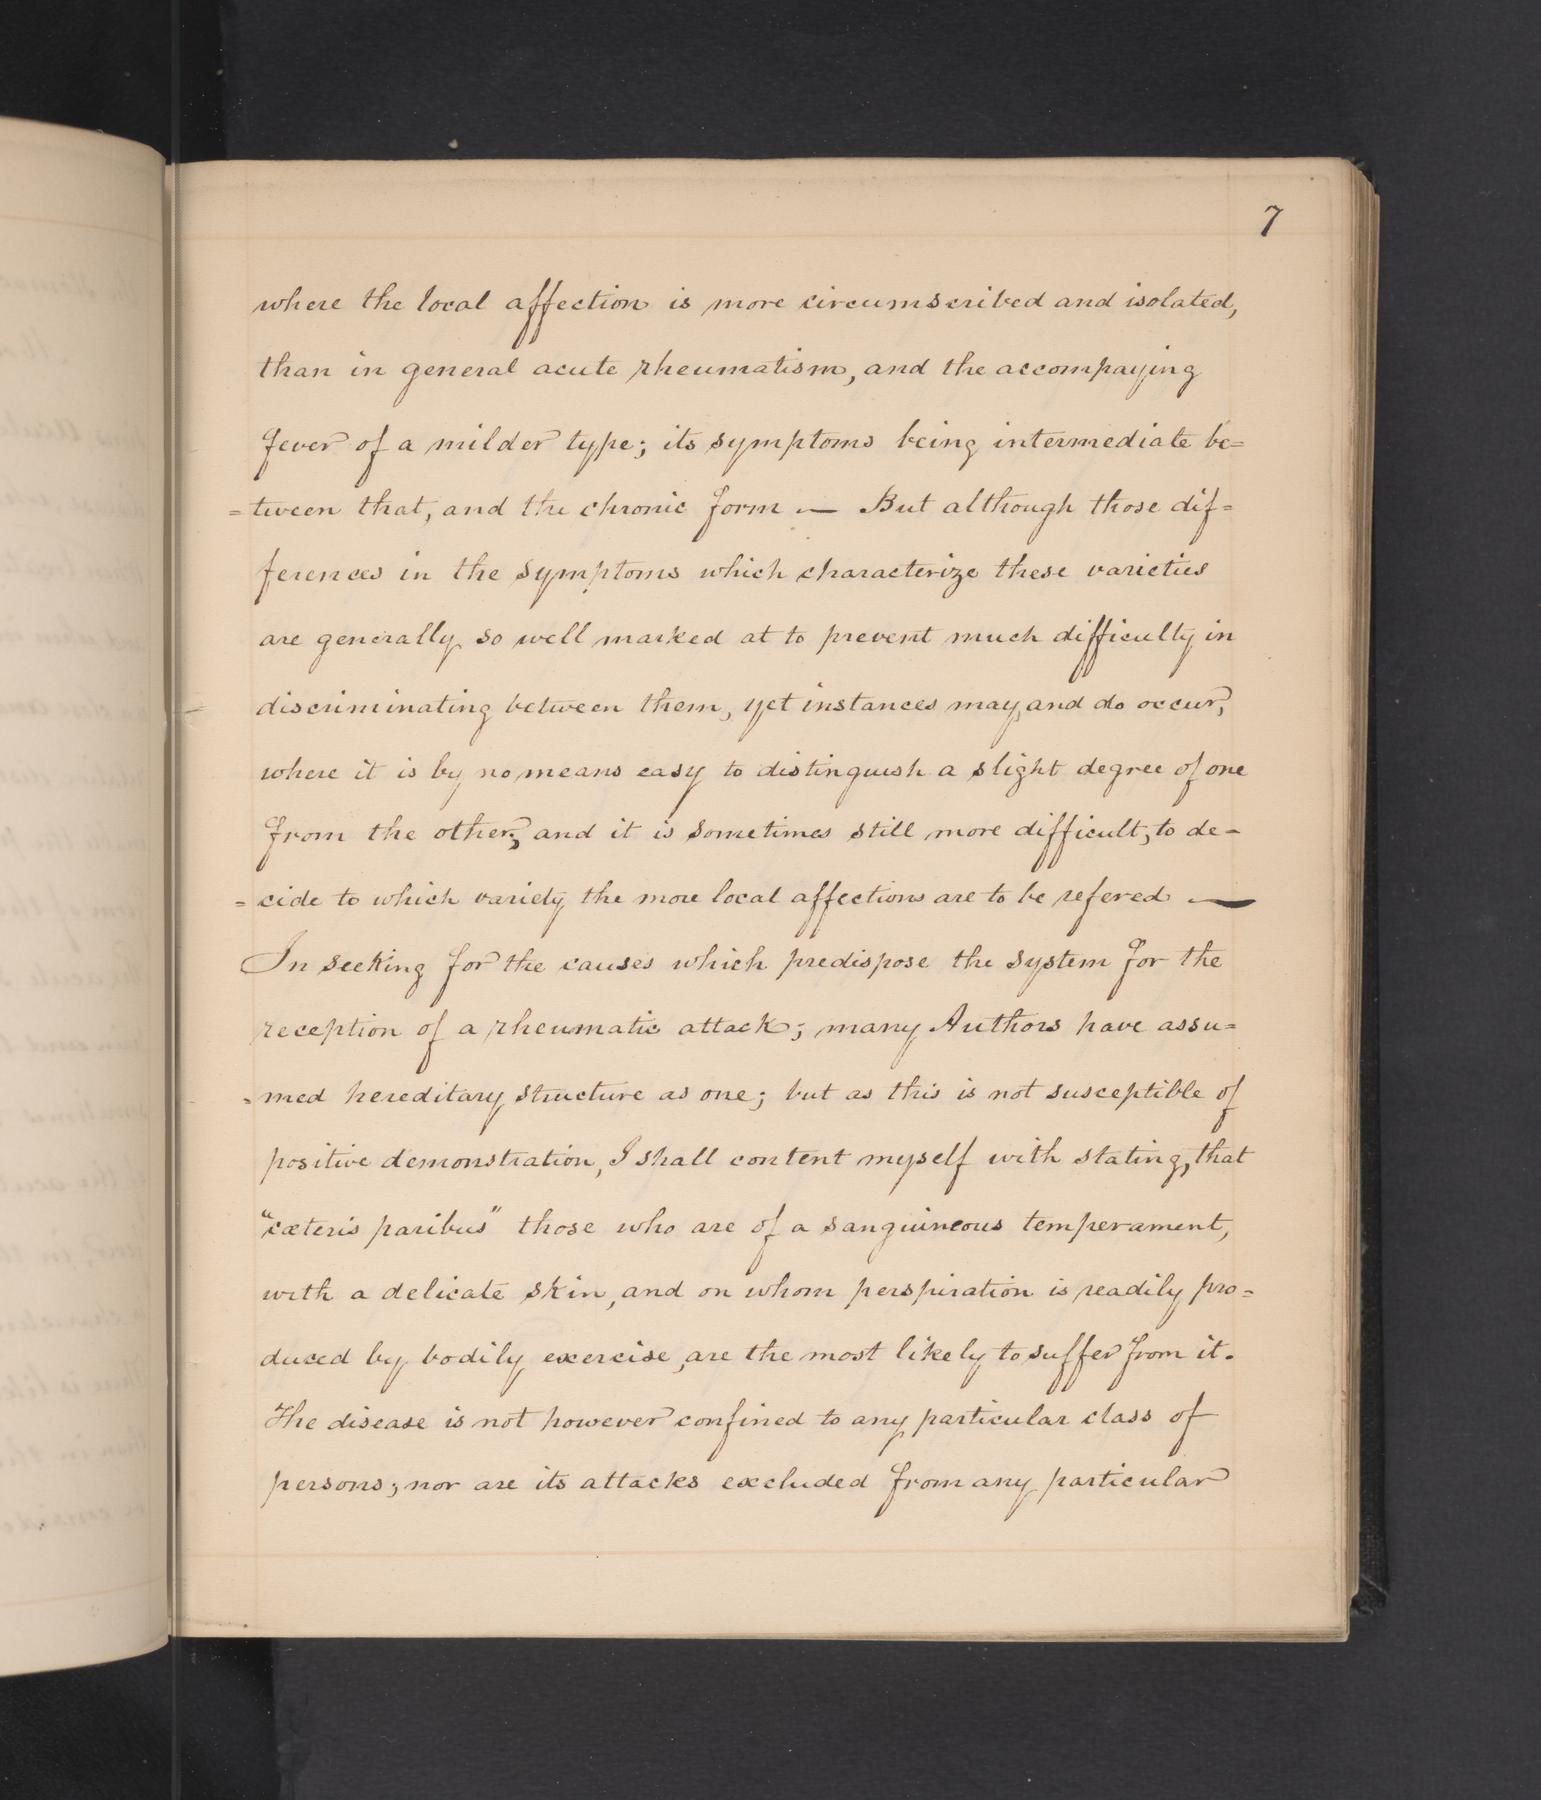 7
where the local affection is more circumscribed and isolated,
than in general acute rheumatism, and the accompaying
fever of a milder type; its symptoms being intermediate be=
=tween that, and the chronic form — But although those dif=
ferences in the symptoms which characterize these varieties
are generally so well marked at to prevent much difficulty in
discriminating between them, yet instances may, and do occur,
where it is by no means easy to distinguish a slight degree of one
from the other; and it is sometimes still more difficult, to de-
=cide to which variety the more local affections are to be refered —
In seeking for the causes which predispose the system for the
reception of a rheumatic attack; many Authors have assu=
=med hereditary structure as one; but as this is not susceptible of
positive demonstration, I shall content myself with stating, that
"cæteris paribus" those who are of a sanguineous temperament,
with a delicate skin, and on whom perspiration is readily pro=
duced by bodily exercise, are the most likely to suffer from it.
The disease is not however confined to any particular class of
persons; nor are its attacks excluded from any particular